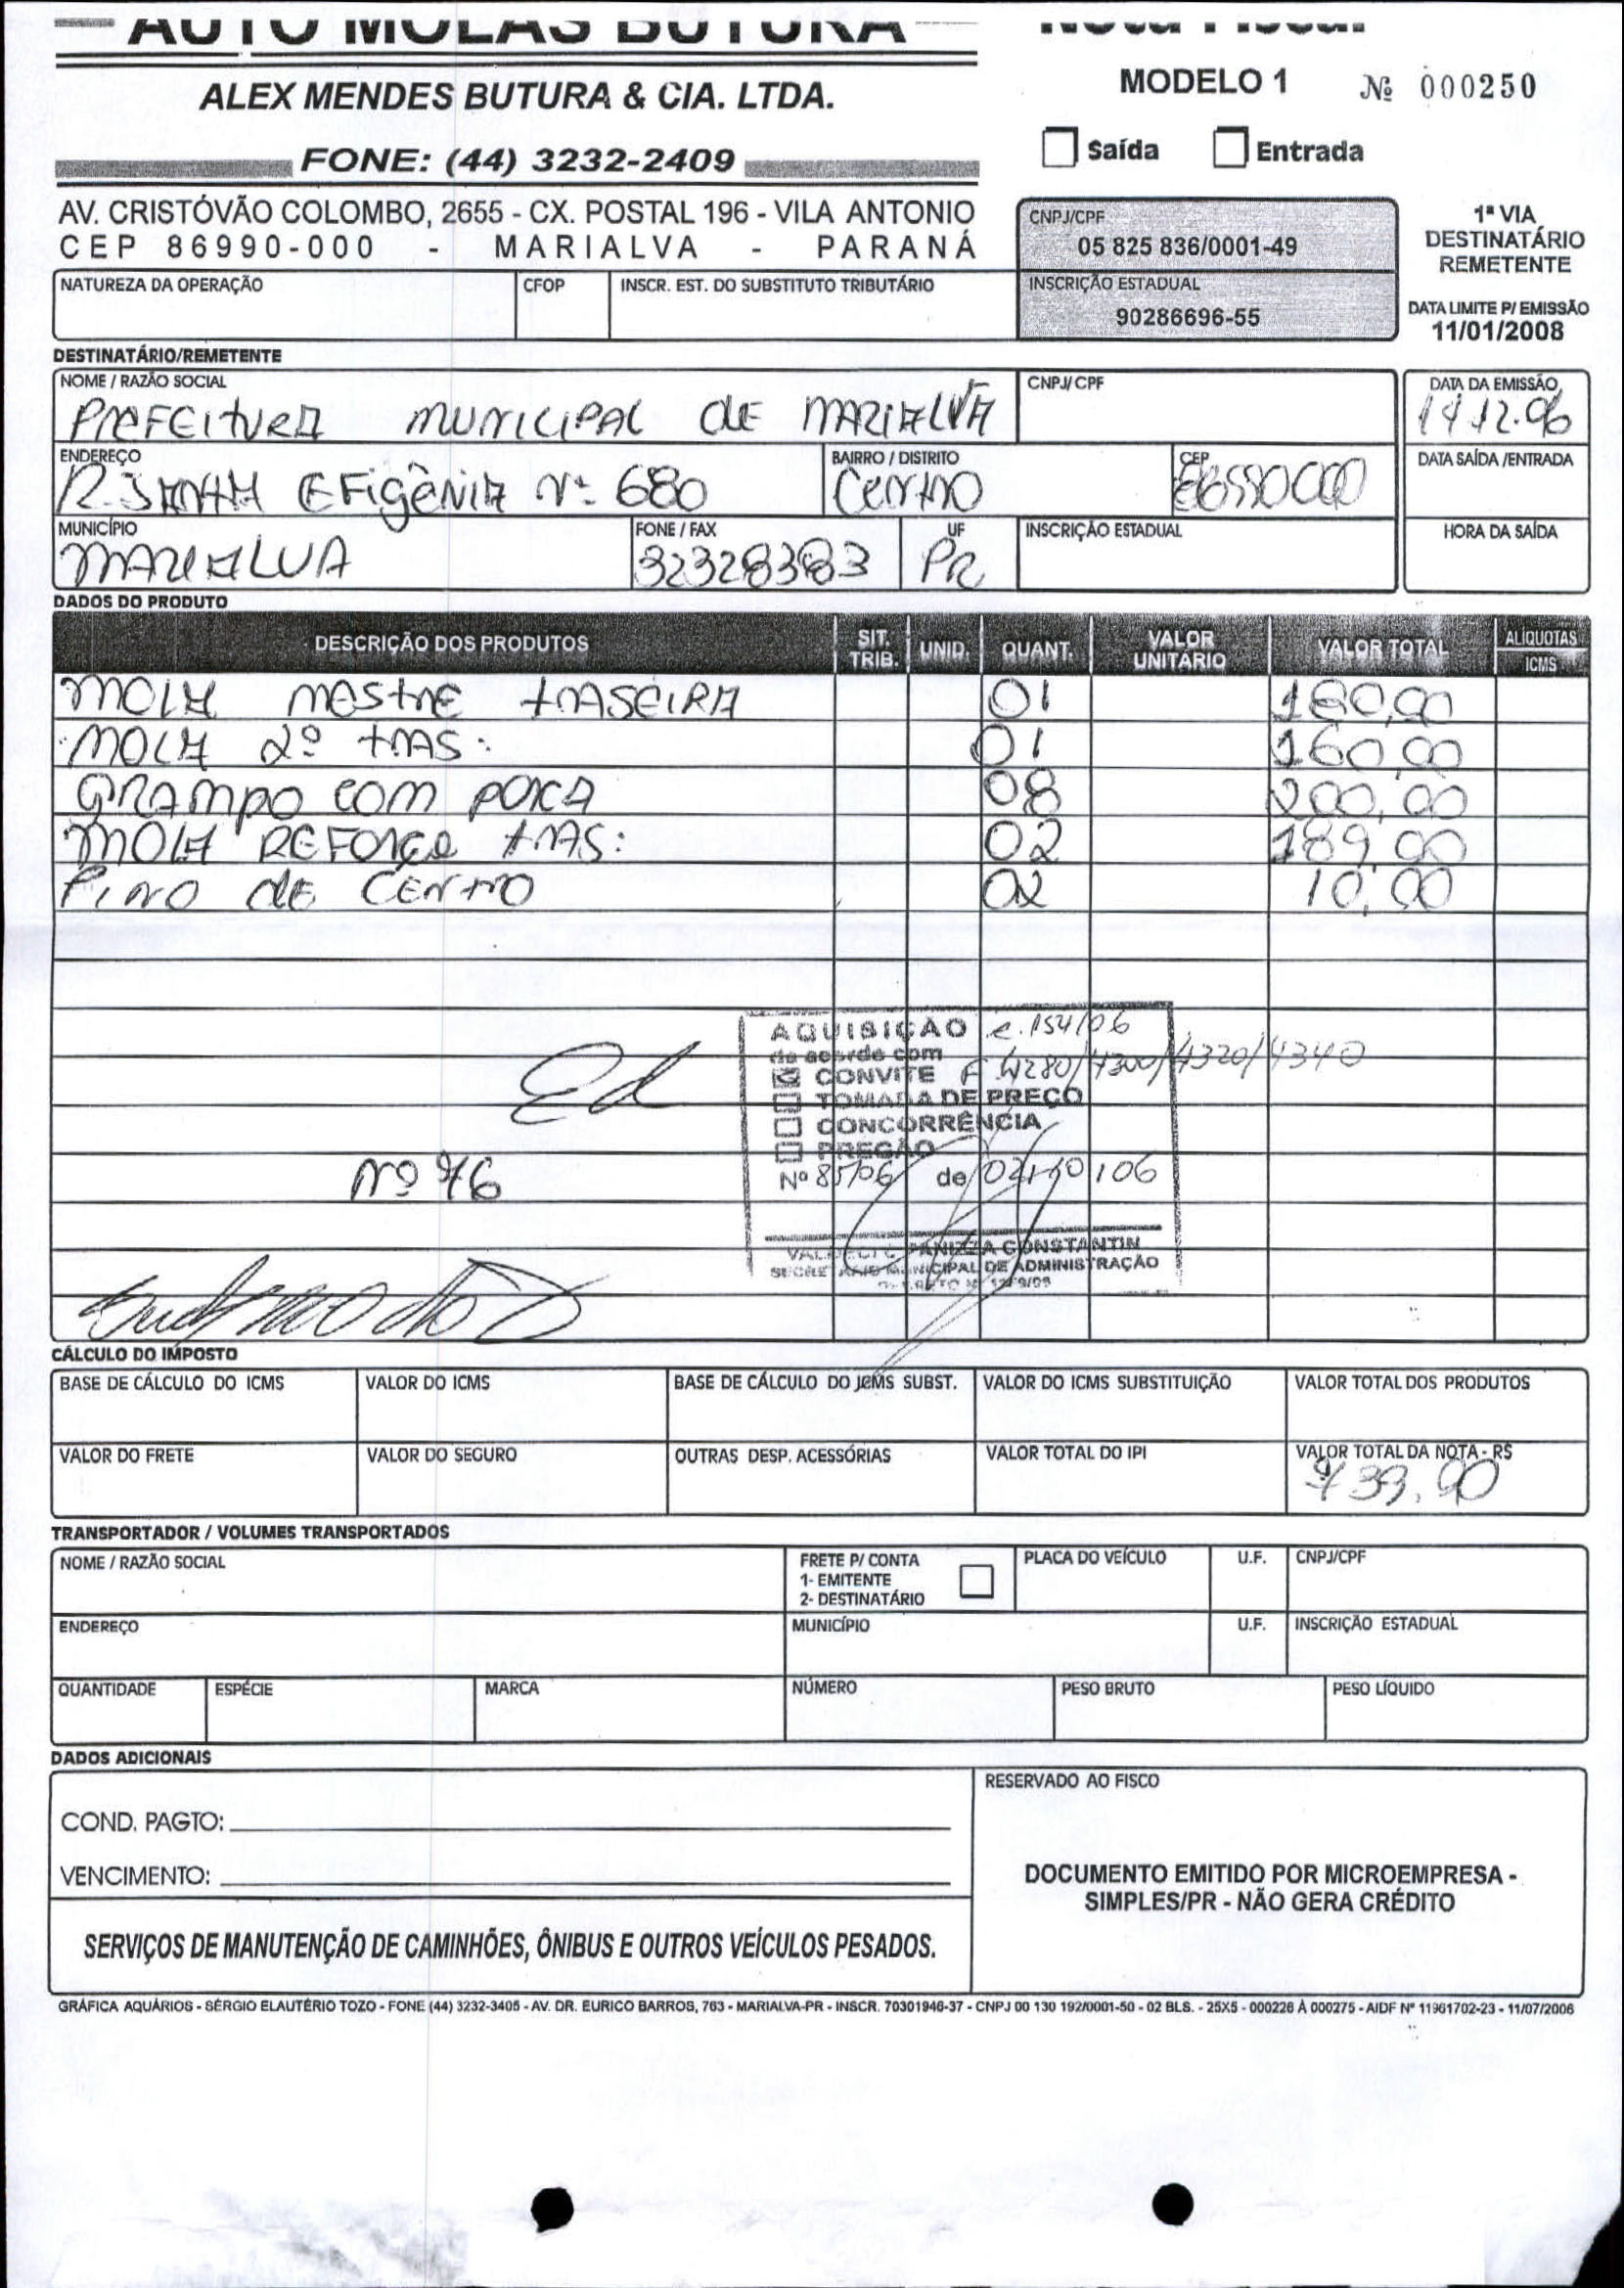 AUTO MOLAS BUTURA
Nota Fiscal
ALEX MENDES BUTURA & CIA. LTDA.
MODELO 1 Nº 000250
FONE: (44) 3232-2409
Saída Entrada
AV. CRISTÓVÃO COLOMBO, 2655 - CX. POSTAL 196 - VILA ANTONIO
CEP 86990-000 - MARIALVA - PARANÁ
CNPJ/CPF
05 825 836/0001-49
INSCRIÇÃO ESTADUAL
90286696-55
1ª VIA
DESTINATÁRIO
REMETENTE
DATA LIMITE P/ EMISSÃO
11/01/2008
NATUREZA DA OPERAÇÃO CFOP INSCR. EST. DO SUBSTITUTO TRIBUTÁRIO
DESTINATÁRIO/REMETENTE
NOME / RAZÃO SOCIAL CNPJ/ CPF DATA DA EMISSÃO
PREFEITURA MUNICIPAL DE MARIALVA 14 12.06
ENDEREÇO BAIRRO / DISTRITO CEP DATA SAÍDA /ENTRADA
R. SANTA EFIGÊNIA Nº 680 CENTRO
MUNICÍPIO FONE / FAX UF INSCRIÇÃO ESTADUAL HORA DA SAÍDA
MARIALVA 32328383 PR
DADOS DO PRODUTO
DESCRIÇÃO DOS PRODUTOS SIT. TRIB. UNID. QUANT. VALOR UNITÁRIO VALOR TOTAL ALÍQUOTAS ICMS
MOLA MESTRE TRASEIRA 01 180,00
MOLA 2º TRAS: 01 160,00
GRAMPO COM PORCA 08 200,00
MOLA REFORÇO TRAS: 02 189,00
PINO DE CENTRO 02 10,00
AQUISIÇÃO e. 154/06
de acordo com
CONVITE F 4280/4300/4320/4340
TOMADA DE PREÇO
CONCORRÊNCIA
PREGÃO
Ed
Nº 76
Nº 85/06 de 02/10/06
VALDECI C. PANIZZA CONSTANTIN
SECRETÁRIO MUNICIPAL DE ADMINISTRAÇÃO
CÁLCULO DO IMPOSTO
BASE DE CÁLCULO DO ICMS VALOR DO ICMS BASE DE CÁLCULO DO ICMS SUBST. VALOR DO ICMS SUBSTITUIÇÃO VALOR TOTAL DOS PRODUTOS
VALOR DO FRETE VALOR DO SEGURO OUTRAS DESP. ACESSÓRIAS VALOR TOTAL DO IPI VALOR TOTAL DA NOTA - R$
739,00
TRANSPORTADOR / VOLUMES TRANSPORTADOS
NOME / RAZÃO SOCIAL FRETE P/ CONTA PLACA DO VEÍCULO U.F. CNPJ/CPF
1- EMITENTE
2- DESTINATÁRIO
ENDEREÇO MUNICÍPIO U.F. INSCRIÇÃO ESTADUAL
QUANTIDADE ESPÉCIE MARCA NÚMERO PESO BRUTO PESO LÍQUIDO
DADOS ADICIONAIS
RESERVADO AO FISCO
COND. PAGTO:
VENCIMENTO:
DOCUMENTO EMITIDO POR MICROEMPRESA -
SIMPLES/PR - NÃO GERA CRÉDITO
SERVIÇOS DE MANUTENÇÃO DE CAMINHÕES, ÔNIBUS E OUTROS VEÍCULOS PESADOS.
GRÁFICA AQUÁRIOS - SÉRGIO ELAUTÉRIO TOZO - FONE (44) 3232-3405 - AV. DR. EURICO BARROS, 763 - MARIALVA-PR - INSCR. 70301946-37 - CNPJ 00 130 192/0001-50 - 02 BLS. - 25X5 - 000226 À 000275 - AIDF Nº 11961702-23 - 11/07/2006